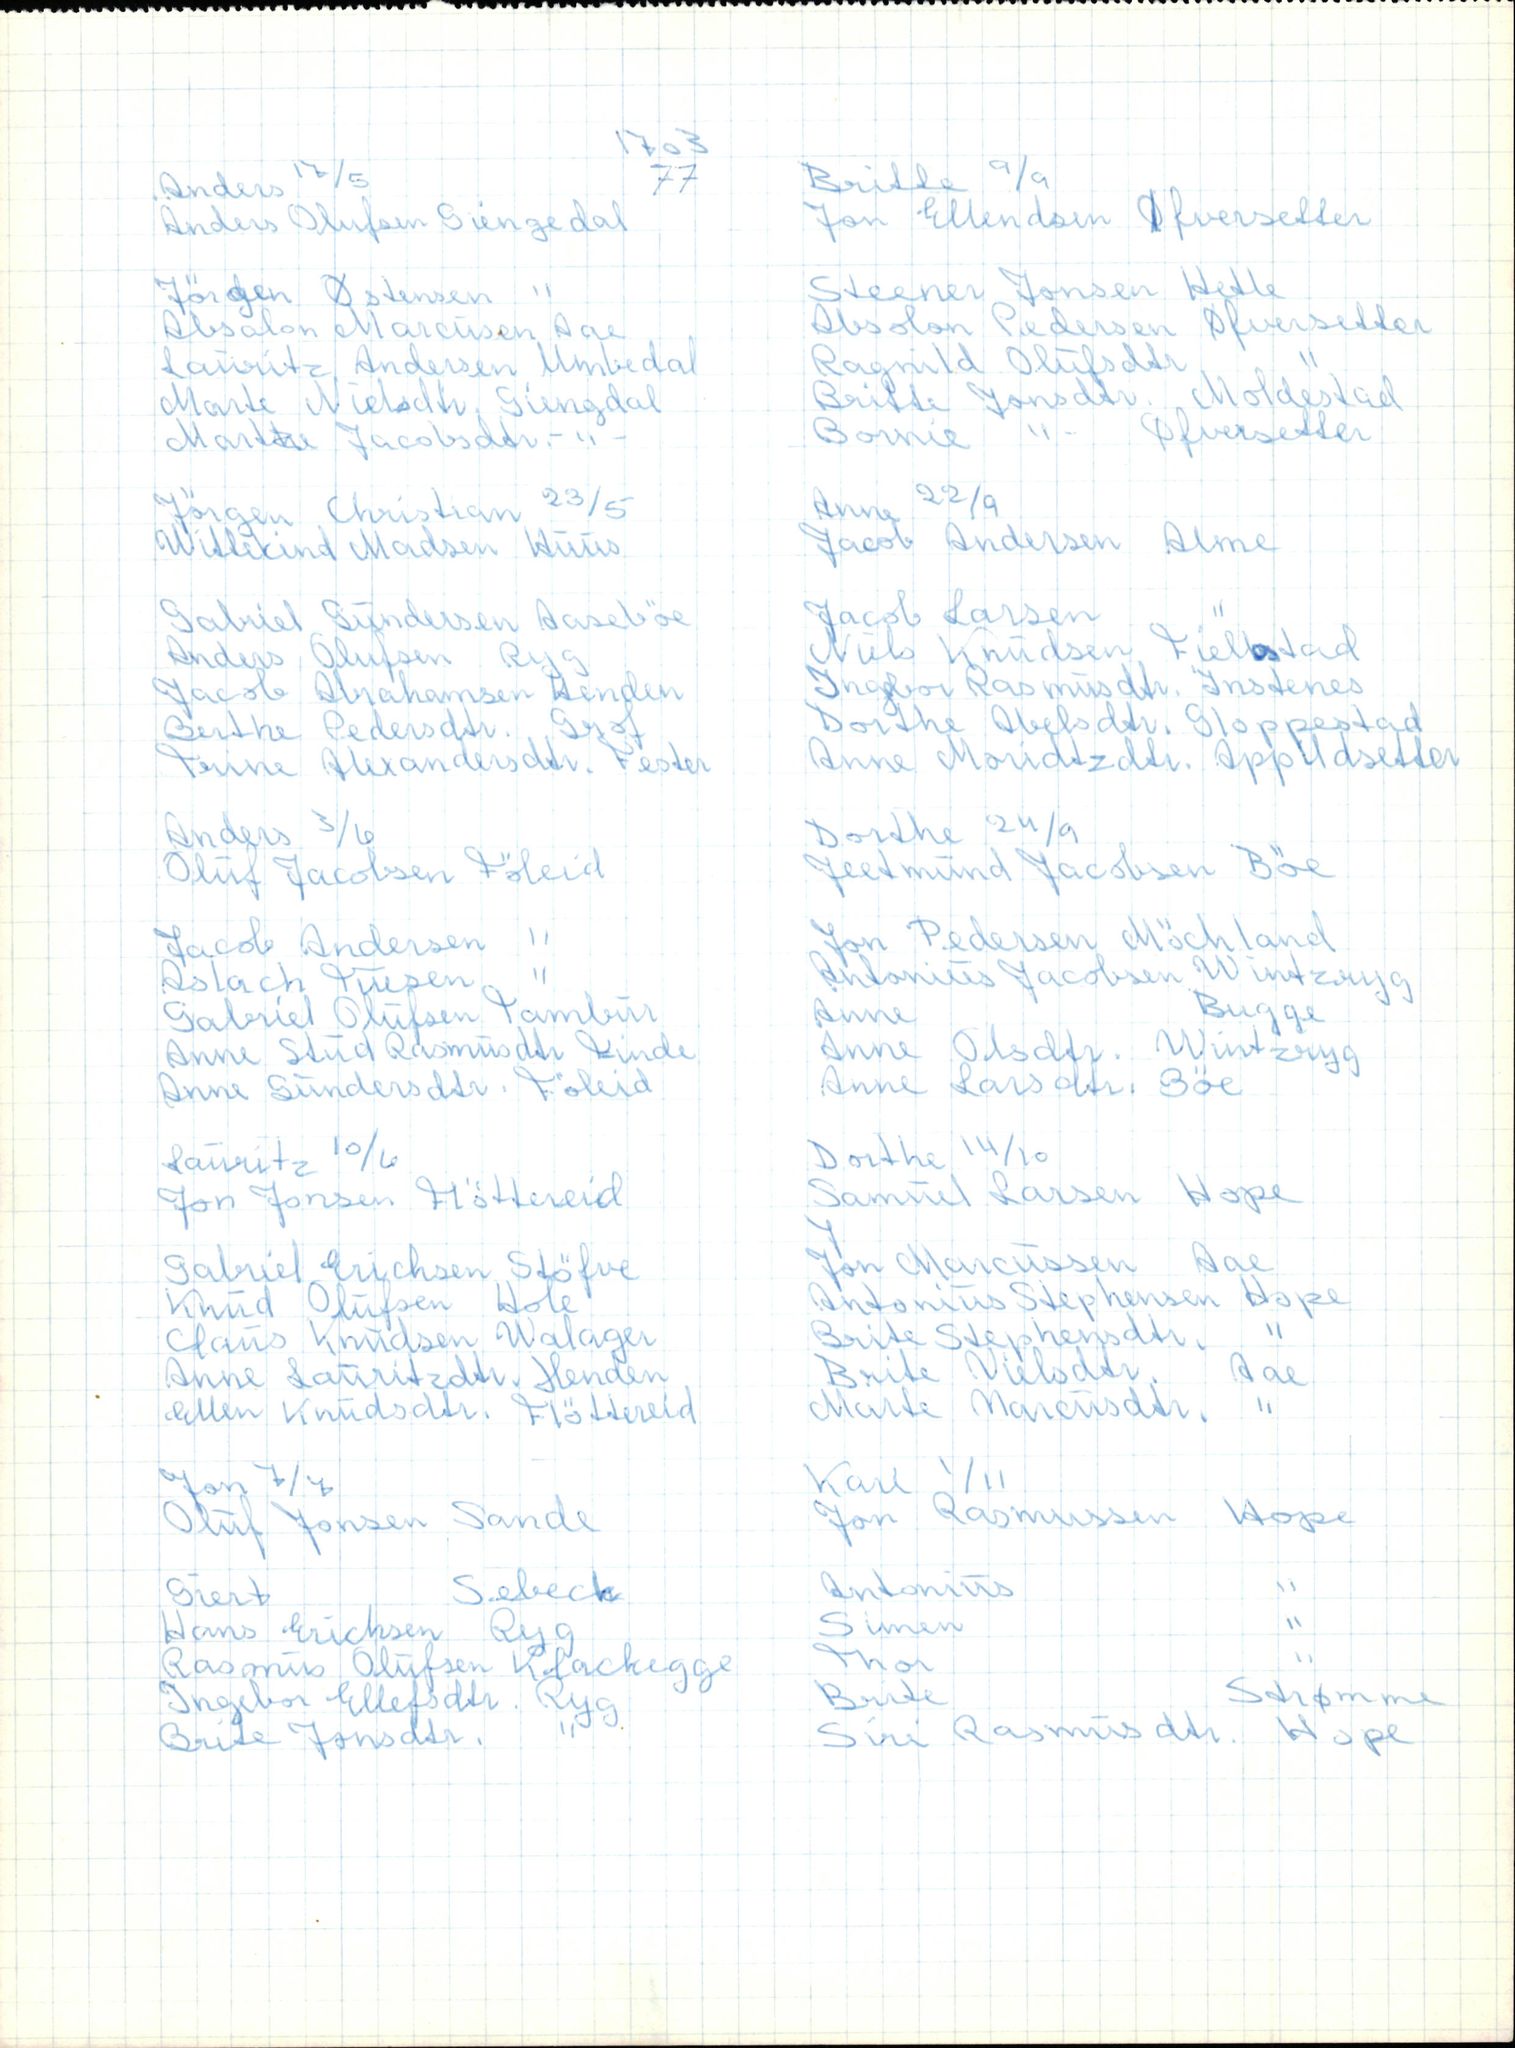 1703
77
Anders 17/5
Anders Olufsen Giengedal
Jörgen Østensen "
Absalon Marcüsen Aae
Laüritz Andersen Umbedal
Marte Nielsdtr. Giengdal
Marthe Jacobsdtr. - " -
Jörgen Christian 23/5
Wittekind Madsen Hüüs
Gabriel Gündersen Aaseböe
Anders Olufsen Ryg
Jacob Abrahamsen Henden
Berthe Pedersdtr. Gröf
Trine Alexandersdtr. Fester
Anders 3/6
Olüf Jacobsen Föleid
Jacob Andersen "
Aslach Tüesen "
Gabriel Olüfsen Tambür
Anne Stüd Rasmüsdtr Linde
Anne Gündersdtr. Föleid
Laüritz 10/6
Jon Jonsen Flöttereid
Gabriel Erichsen Stöfve
Knüd Olüfsen Hole
Claüs Knüdsen Walager
Anne Laüritzdtr. Henden
Ellen Knüdsdtr. Flöttereid
Jon 7/7
Olüf Jonsen Sande
Giert Seebeck
Hans Erichsen Ryg
Rasmüs Olüfsen Klackegge
Ingebor Ellefsdtr. Ryg
Brite Jonsdtr. "
Britte 9/9
Jon Ellendsen Øfversetter
Steener Jonsen Hetle
Absolon Pedersen Øfversetter
Ragnild Olüfsdtr "
Britte Jonsdtr. Moldestad
Bornie " - Øfversetter
Anne 22/9
Jacob Andersen Alme
Jacob Larsen "
Niels Knüdsen Fiellestad
Ingbor Rasmüsdtr. Instenes
Dorthe Abelsdtr. Gloppestad
Anne Moridtzdtr. Appildsetter
Dorthe 24/9
Jeetmünd Jacobsen Böe
Jon Pedersen Möchland
Antoniüs Jacobsen Wintzryg
Anne Bugge
Anne Olsdtr. Wintzryg
Anne Larsdtr. Böe
Dorthe 14/10
Samüel Larsen Hope
Jon Marcüssen Aae
Antoniüs Stephensen Hope
Brite Stephensdtr. "
Brite Nielsdtr. Aae
Marte Marcüsdtr. "
Karl 1/11
Jon Rasmussen Hope
Antoniüs "
Simen "
Thor "
Brite Strømme
Siri Rasmüsdtr. Hope